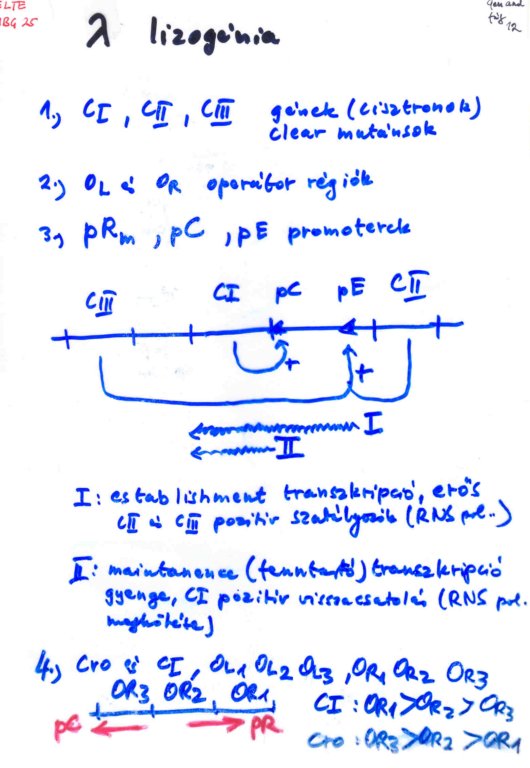 ELTE
MBG 25
12
λ lizogénia
1., CI, CII, CIII gének (cisztronok)
clear mutánsok
2., OL és OR operátor régiók
3, pRm, pC, pE promoterek
CIII CI pC pE CII
+ +
I
II
I: establishment transzkripció, erős
CII és CIII pozitív szabályozók (RNS pol..)
II: maintanence (fenntartó) transzkripció
gyenge, CI pozitív visszacsatolás (RNS pol.
megkötése)
4., Cro és CI, OL1 OL2 OL3, OR1 OR2 OR3
OR3 OR2 OR1 CI: OR1>OR2>OR3
pC pR cro: OR3>OR2>OR1